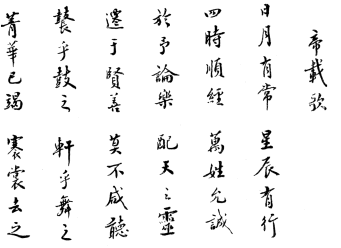 帝載歌
日月有常 星辰有行
四時順經 萬姓允誠
於予論樂 配天之靈
遷于賢善 莫不咸聽
鼚乎鼓之 軒乎舞之
菁華已竭 褰裳去之